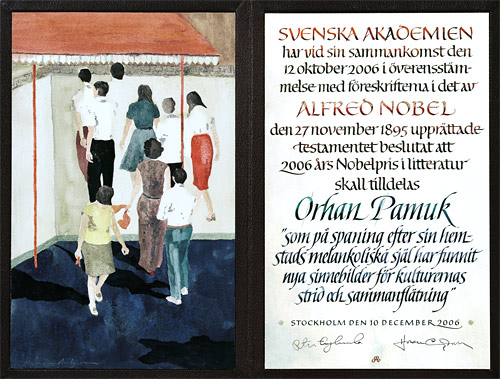 SVENSKA AKADEMIEN
har vid sin sammankomst den
12 oktober 2006 i överensstäm-
melse med föreskrifterna i det av
ALFRED NOBEL
den 27 november 1895 upprättade
testamentet beslutat att
2006 års Nobelpris i litteratur
skall tilldelas
Orhan Pamuk
"som på spaning efter sin hem-
stads melankoliska själ har funnit
nya sinnebilder för kulturernas
strid och sammanflätning"
STOCKHOLM DEN 10 DECEMBER 2006